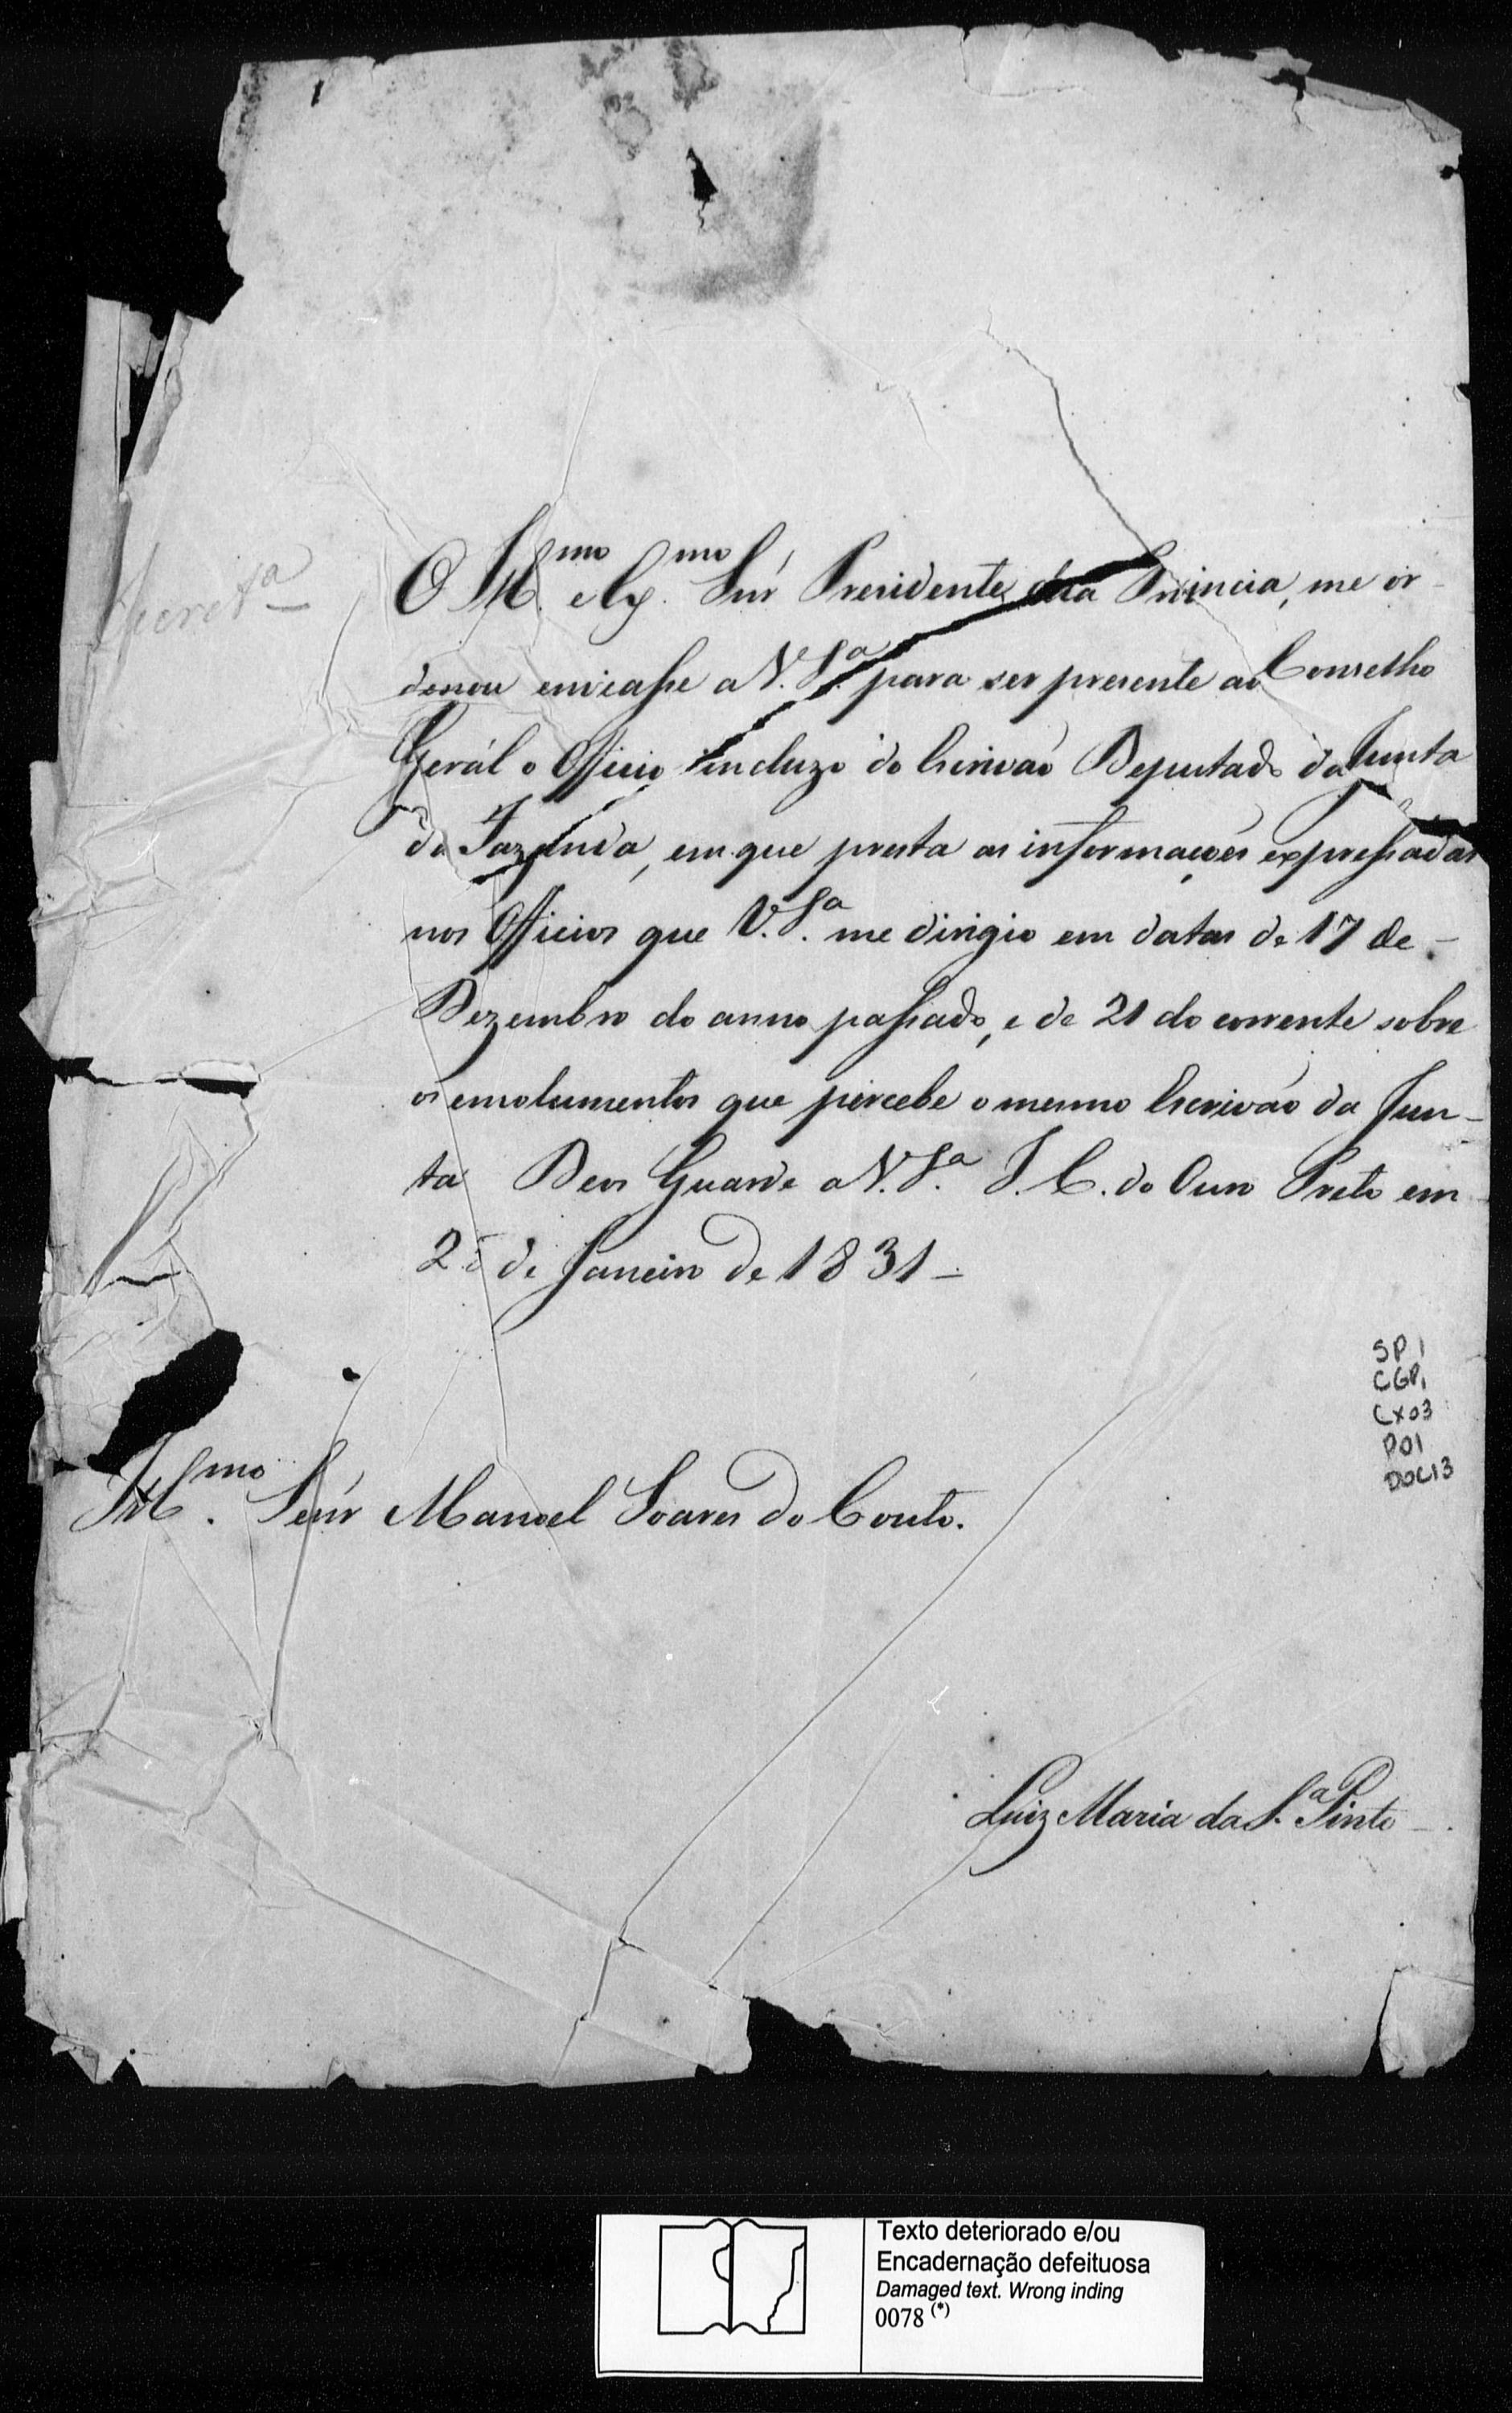 Secret.ª
O Ill.mo e Ex.mo Snr̃ Presidente da Provincia, me or-
denou enviasse a V. S.ª para ser presente ao Conselho
Gerál o Officio incluzo do Escrivaõ Deputado da Junta
da Fazenda, em que presta as informações expressadas
nos Officios que V. S.ª me dirigio em datas de 17 de
Dezembro do anno passado, e de 21 do corrente sobre
os emolumentos que percebe o mesmo Escrivaõ da Jun-
ta Deos Guarde a V. S.ª I. C. do Ouro Preto em
de Janeiro de 1831 -
Ill.mo Senr̃ Manoel Soares do Couto.
Luiz Maria da S.ª Pinto
SP 1
CGP1
CX03
P01
DOC13
Texto deteriorado e/ou
Encadernação defeituosa
Damaged text. Wrong inding
0078 (*)